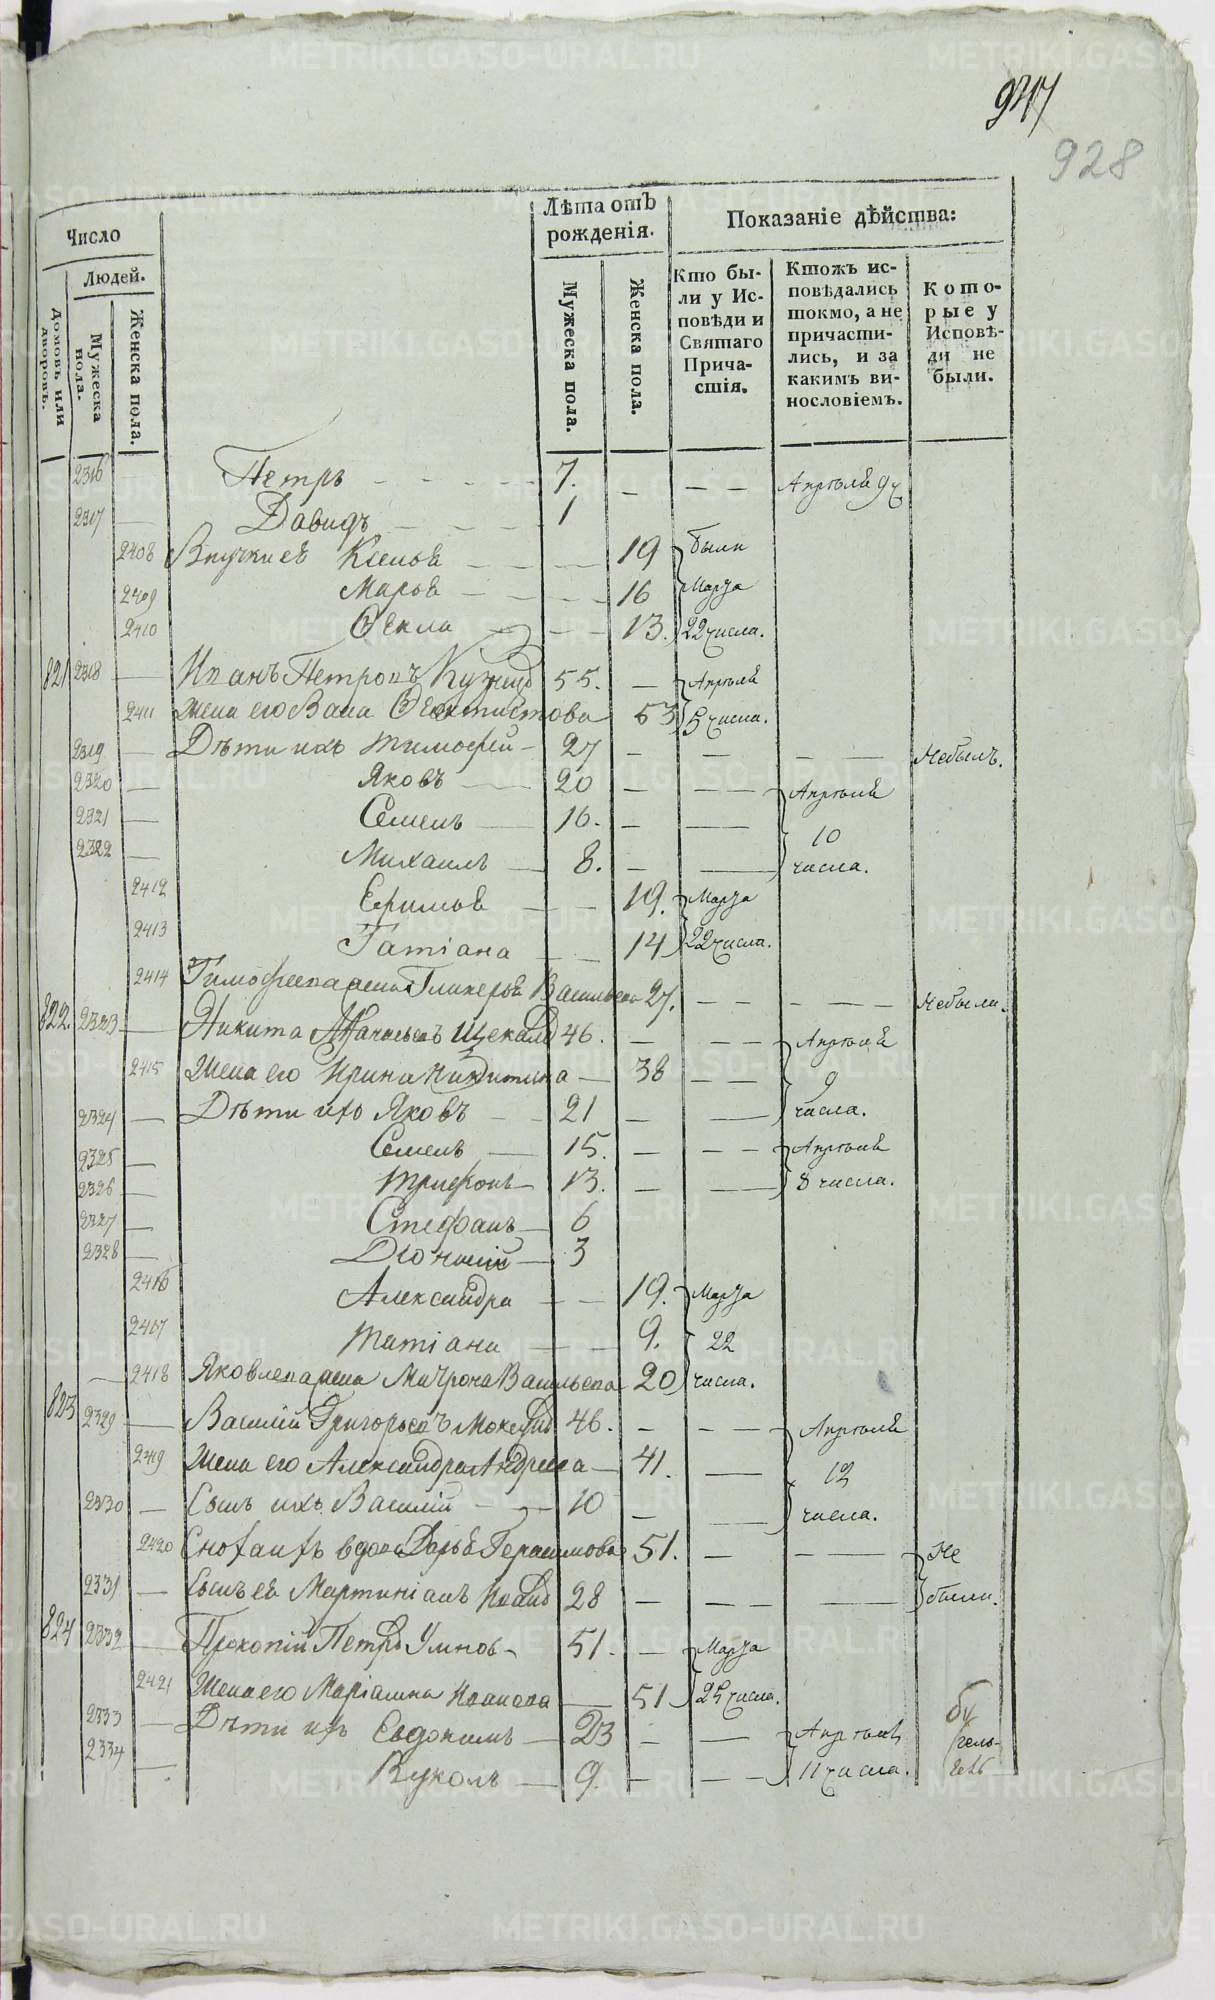 947
928
Число
Людей.
Домовъ или дворовъ.
Мужеска пола.
Женска пола.
Лѣта отъ рожденія.
Мужеска пола.
Женска пола.
Показаніе дѣйства:
Кто бы-
ли у Ис-
повѣди и
Святаго
Прича-
стія.
Ктожъ ис-
повѣдались
токмо, а не
причасти-
лись, и за
какимъ ви-
нословіемъ.
Кото-
рые у
Исповѣ-
ди не
были.
2316 Петръ 7. Апрѣля 9
2317 Давидъ 1
2408 Внучки ея Ксенья 19 были
2409 Марья 16 Марта
2410 Ѳекла 13. 22 числа.
821 2318 Иванъ Петровъ 55. Апрѣля
2411 Жена его Ѳеоктистова 53 5 числа.
2319 Дѣти ихъ Тимофей 27 Небылъ.
2320 Яковъ 20 Апрѣля
2321 Семенъ 16. 10
2322 Михаилъ 8. числа.
2412 Ефимья 19. Марта
2413 Татіана 14 22 числа.
2414 Тимофеева жена Гликерья Васильева 27. Небыли.
822. 2323 Никита 46. Апрѣля
2415 Жена его Ирина Никитина 38 9
2324 Дѣти ихъ Яковъ 21 числа.
2325 Семенъ 15. Апрѣля
2326 Трифонъ 13. 8 числа.
2327 Стефанъ 6
2328 Діонисій 3
2416 Александра 19. Марта
2417 Татіана 9. 22
2418 Яковлева жена Матрона Васильева 20 числа.
823 2329 Василій Григорьевъ 46. Апрѣля
2419 Жена его Александра Андреева 41. 12
2330 Сынъ ихъ Василій 10 числа.
2420 Сноха ихъ вдова Дарья Герасимова 51. Не
2331 Сынъ ея Мартиніанъ 28 были.
824 2332 Прокопій Петровъ Умновъ 51. Марта
2421 Жена его Маріамна Иванова 51 25 числа.
2333 Дѣти ихъ Евдокимъ 23 Апрѣля
2334 Вуколъ 9. 11 числа.
METRIKI.GASO-URAL.RU